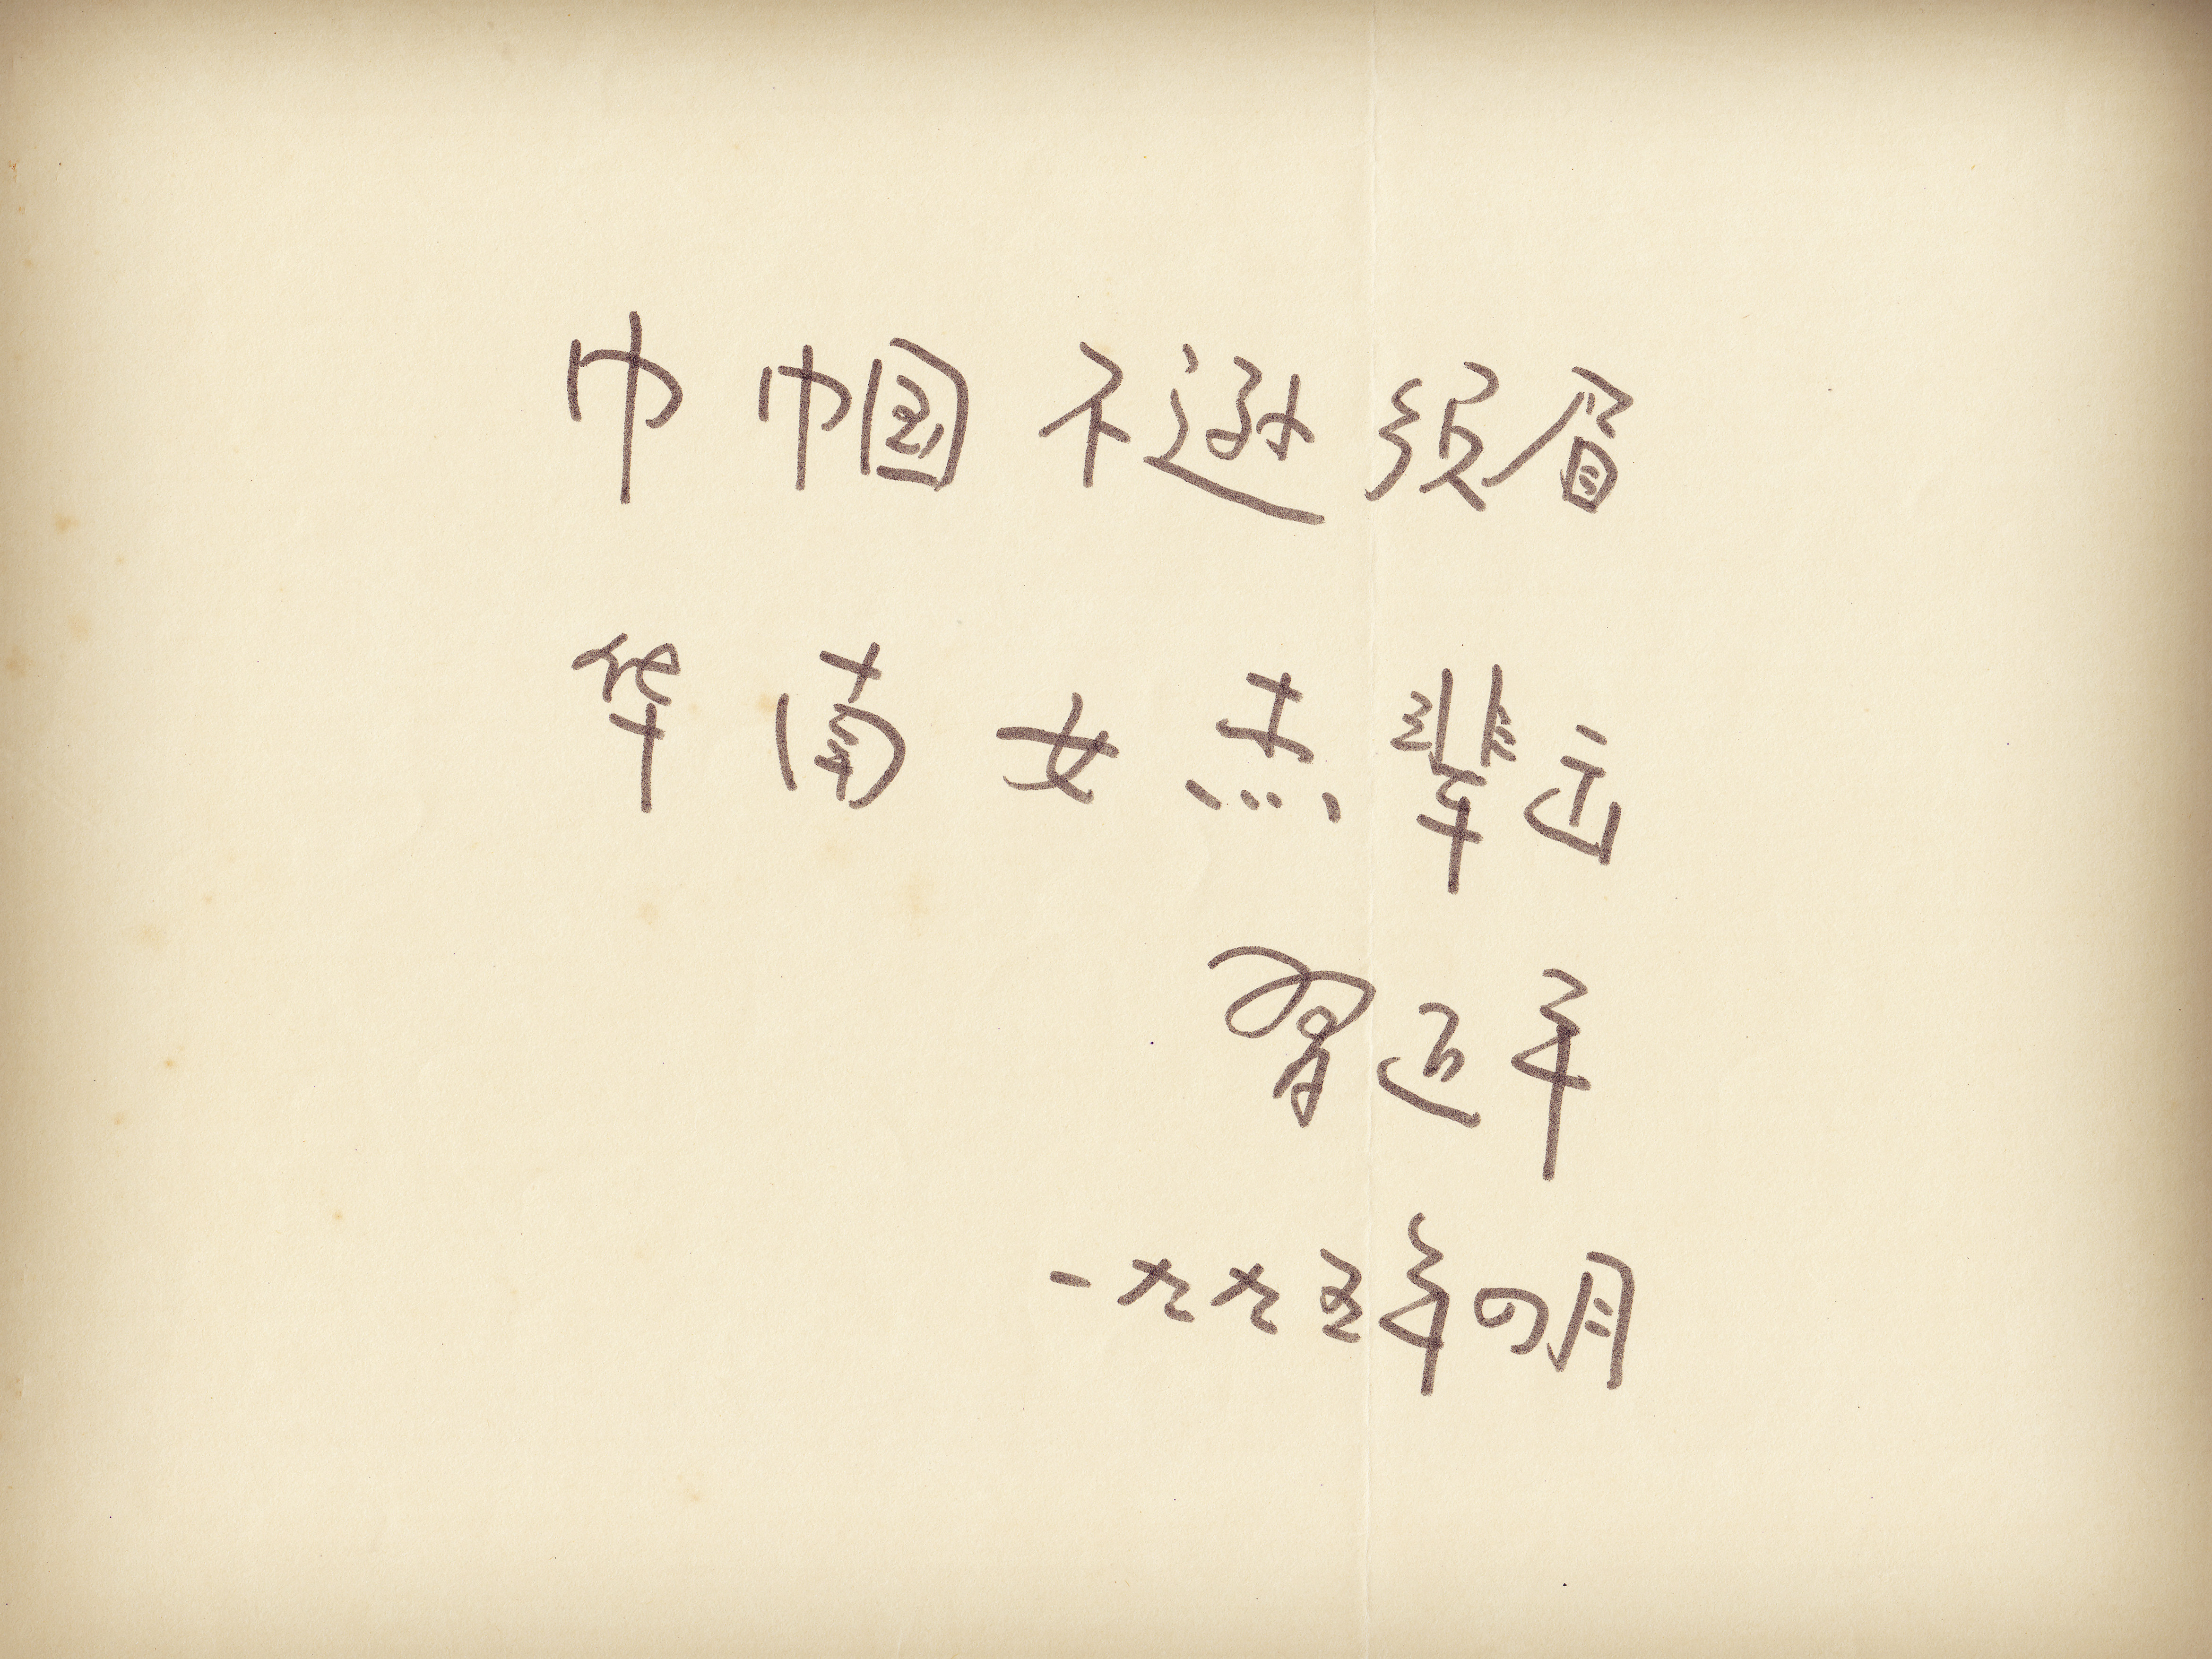 巾帼不逊须眉
华南女杰辈出
习近平
一九九五年四月